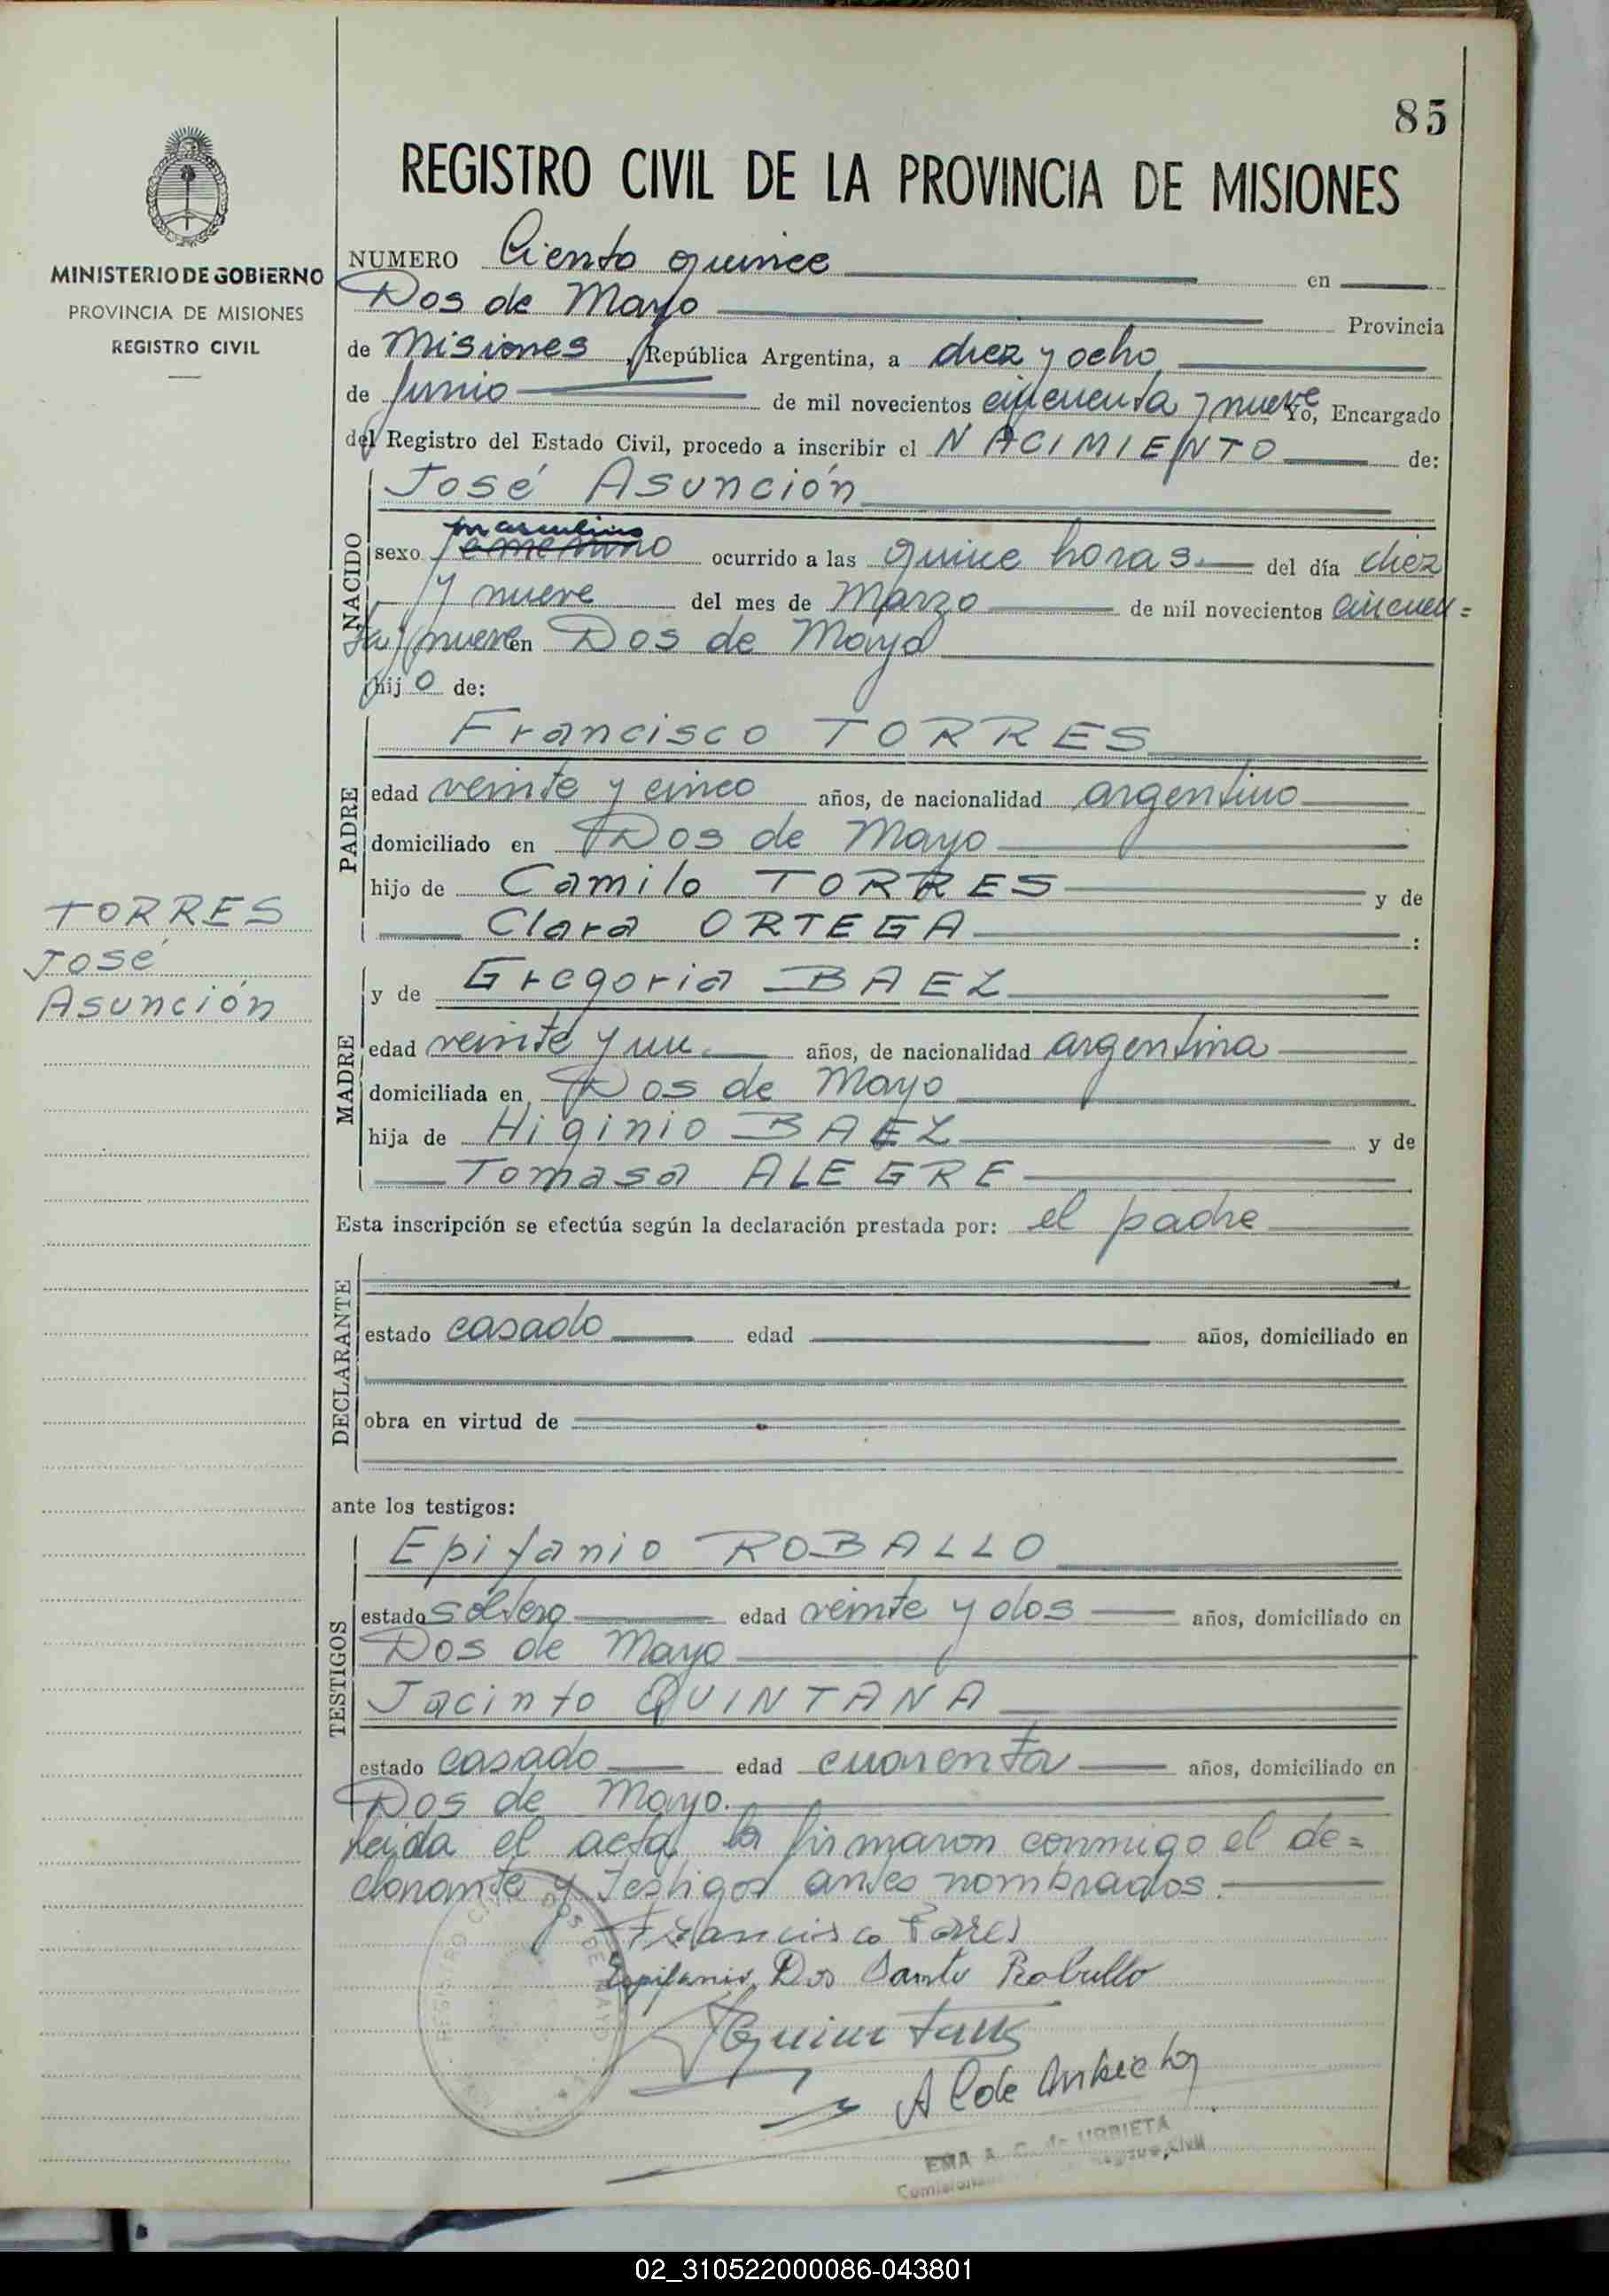 85
REGISTRO CIVIL DE LA PROVINCIA DE MISIONES
MINISTERIO DE GOBIERNO
PROVINCIA DE MISIONES
REGISTRO CIVIL
NUMERO Ciento quince en
Dos de Mayo Provincia
de Misiones, República Argentina, a diez y ocho
de Junio de mil novecientos cincuenta y nueve Yo, Encargado
del Registro del Estado Civil, procedo a inscribir el NACIMIENTO de:
NACIDO
José Asunción
masculino
sexo femenino ocurrido a las quince horas. del día diez
y nueve del mes de Marzo de mil novecientos cincuen=
ta y nueve en Dos de Mayo
hijo de:
PADRE
Francisco TORRES
edad veinte y cinco años, de nacionalidad argentino
domiciliado en Dos de Mayo
hijo de Camilo TORRES y de
Clara ORTEGA :
TORRES
José
Asunción
MADRE
y de Gregoria BAEZ
edad veinte y un años, de nacionalidad argentina
domiciliada en Dos de Mayo
hija de Higinio BAEZ y de
Tomasa ALEGRE
Esta inscripción se efectúa según la declaración prestada por: el padre
DECLARANTE
estado casado edad años, domiciliado en
obra en virtud de
ante los testigos:
TESTIGOS
Epifanio ROBALLO
estado soltero edad veinte y dos años, domiciliado en
Dos de Mayo
Jacinto QUINTANA
estado casado edad cuarenta años, domiciliado en
Dos de Mayo.
Leida el acta la firmaron conmigo el de=
clarante y testigos antes nombrados.
Francisco Torres
Epifanio Dos Santo Roballo
REGISTRO CIVIL DOS DE MAYO
EMA A. C. de URBIETA
Registro Civil
02_310522000086-043801